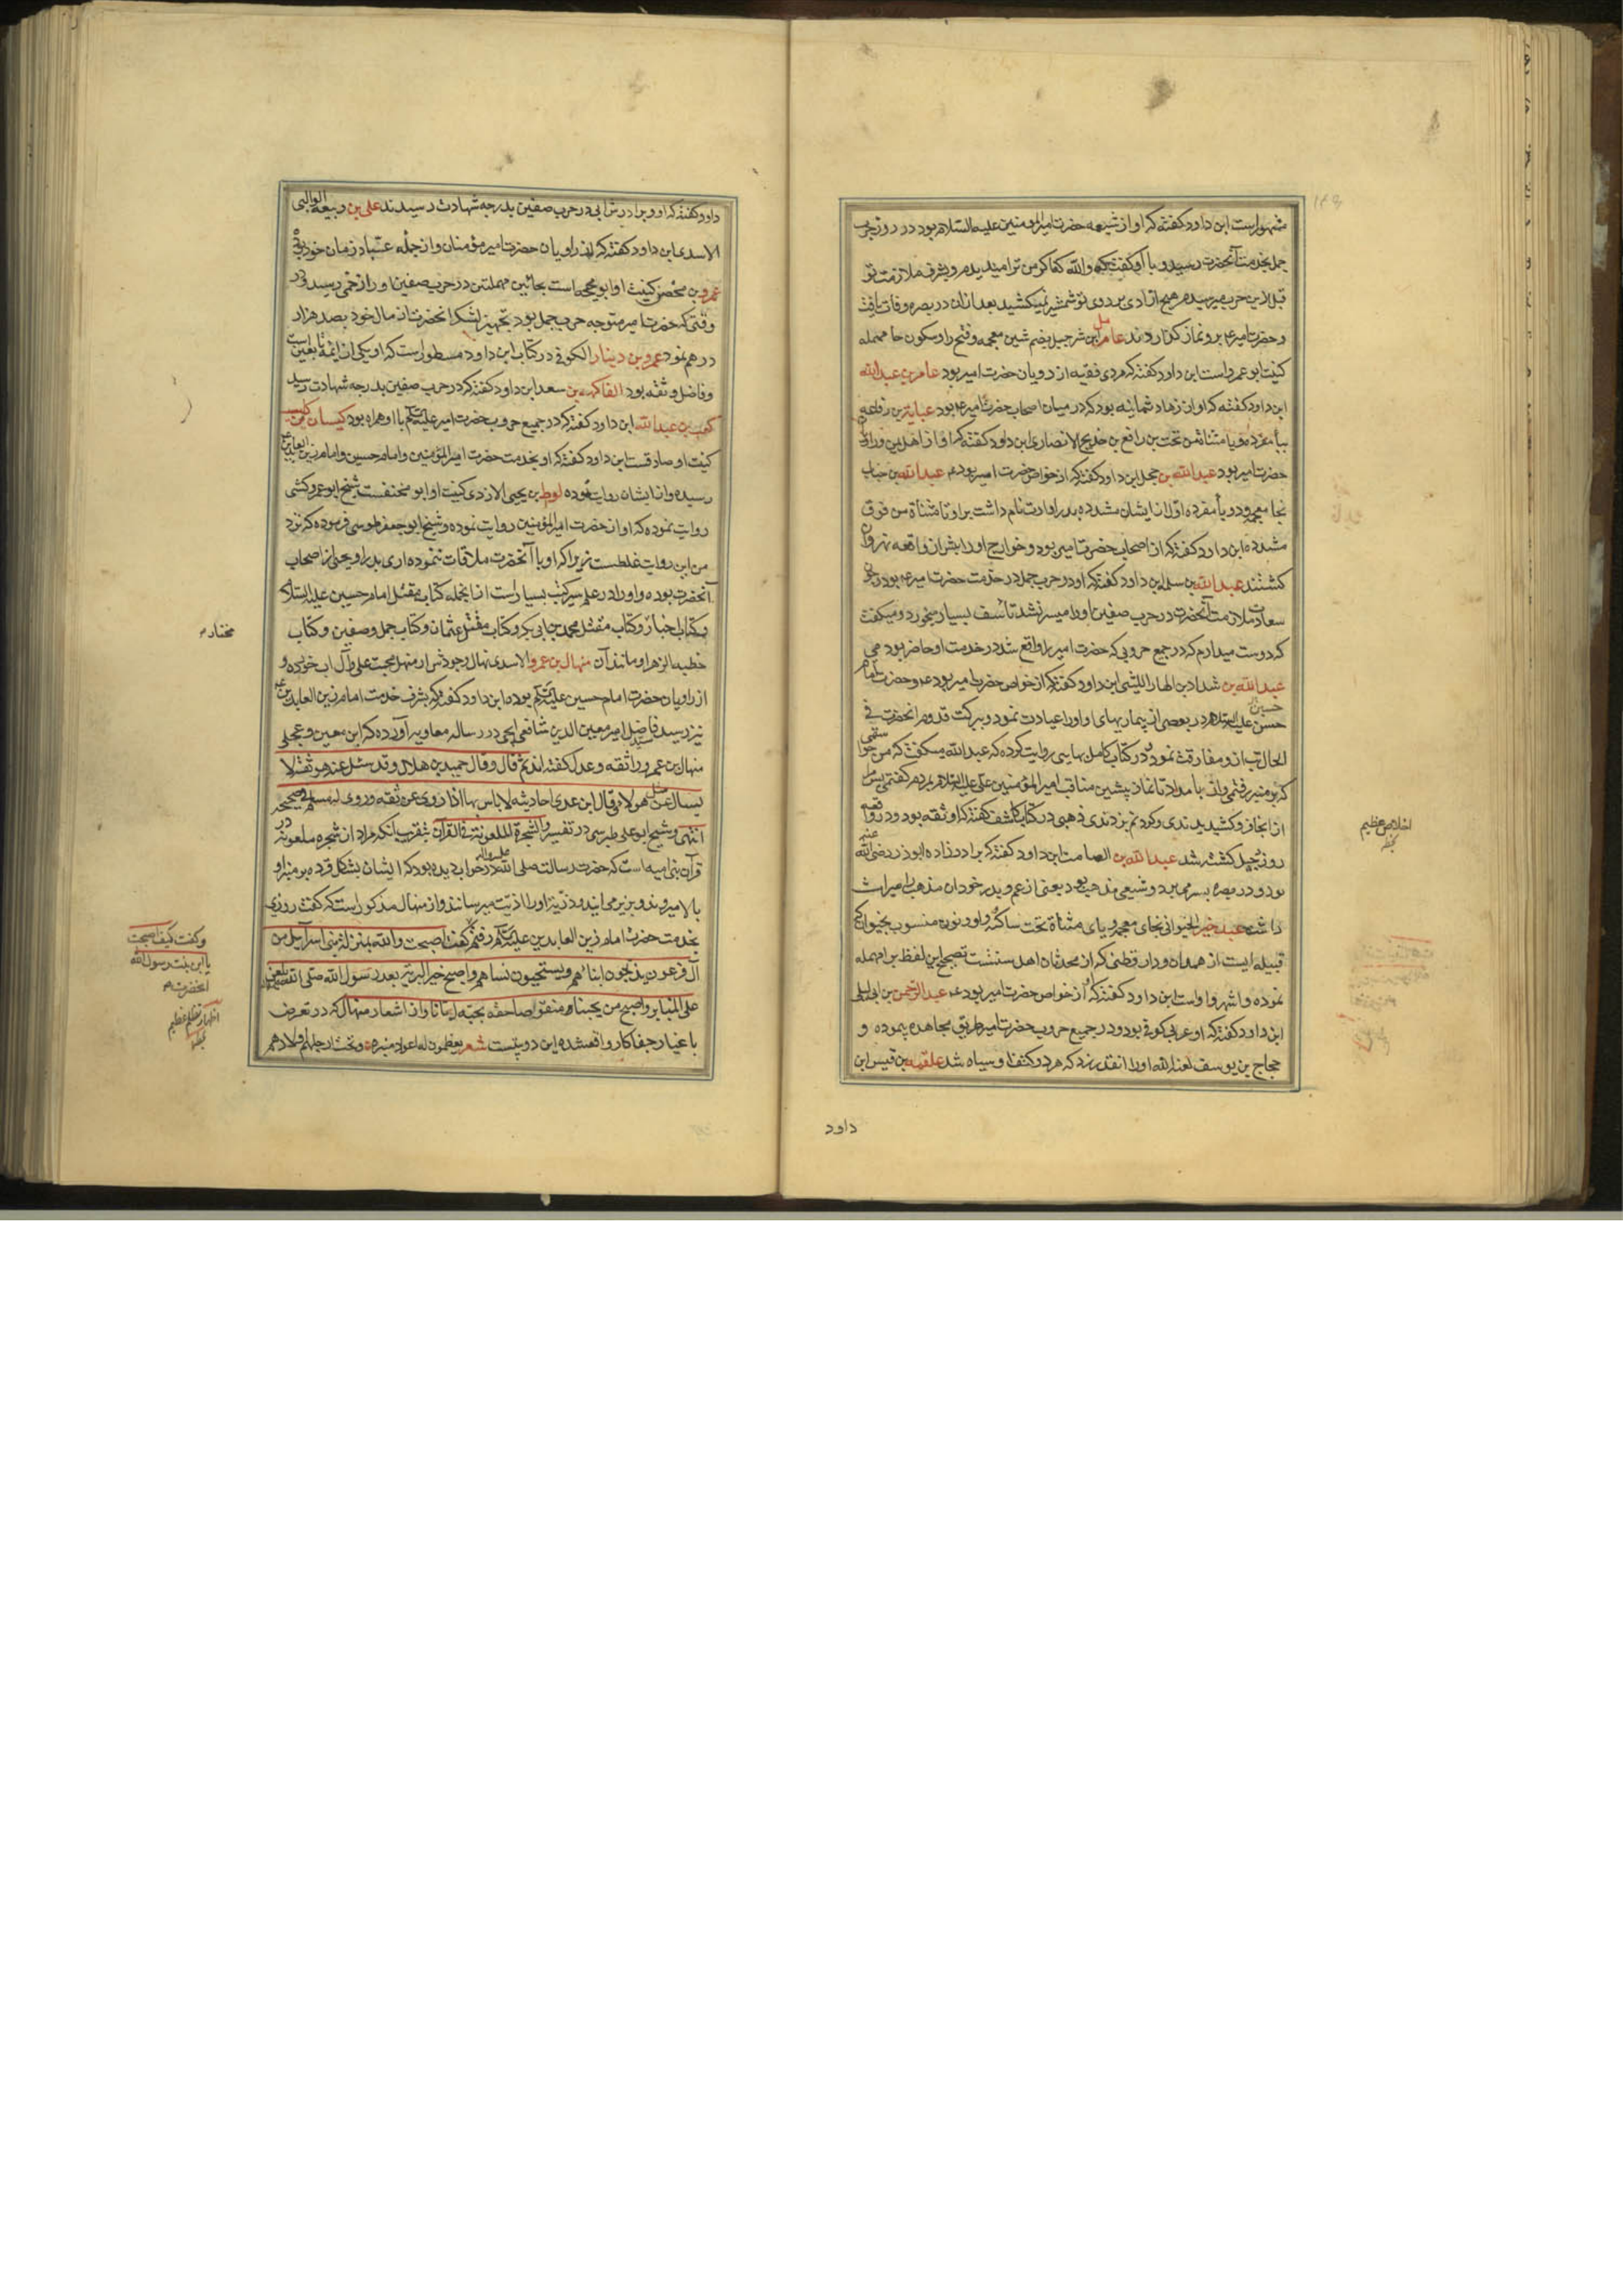 مشهور است ابن داود کفته که او از شیعه حضرت امیرالمومنین علیه السلام بود در روز حرب
جمل بخدمت آنحضرت رسید و با او کفت که والله
قبل از این حرب میرسیدم هیچ ازادی بر روی تو شمشیر نمیکشید بعد از ان در بصره وفات یافت
و حضرت امیر بر و نماز کذاردند عامر بن شرحبیل بضم شین معجمه و فتح را و سکون حا مهمله
کنیت ابو عمرو است ابن داود کفته که مردی فقیه از رویان حضرت امیر بود عامر بن عبدالله
ابن داود کفته که او از زهاد ثمانیه بود که در میان اصحاب حضرت امیر بود عبایة بن رفاعه
بن رافع بن خدیج الانصاری ابن داود کفته که او از اهل یمن
حضرت امیر بود عبدالله بن حجل ابن داود کفته که از خواص حضرت امیر بود عبدالله بن خباب
بخا معجمه و دو با مفرده اولا از ایشان مشدده پدر او ارت نام داشت برا و تا مثناة من فوق
مشدده ابن داود کفته که از اصحاب حضرت امیر بود و خوارج او را پیش از واقعه نهروان
کشتند عبدالله بن سلمه ابن داود کفته که او در حرب جمل در خدمت حضرت امیر بود و چون
سعادت ملازمت آنحضرت در حرب صفین او را میسر نشد تاسف بسیار میخورد و میکفت
که دوست میدارم که در جمیع حروبی که حضرت امیر را واقع شد در خدمت او حاضر بودمی
عبدالله بن شداد بن الهاد اللیثی ابن داود کفته که از خواص حضرت امیر بود و حضرت امام
حسین
حسن علیه السلام در بعضی از بیماریهای او را عیادت نمود و ببرکت قدوم انحضرت فی
الحال تب از و مفارقت نمود در کتاب کامل بهایی روایت کرده که عبدالله میکفت که من
که بر منبر رفتمی و از بامداد تا نماز پیشین مناقب امیرالمؤمنین علی علیه السلام بر مردم کفتمی پس مرا
از انجا فرو کشیدندی و کردنم بزدندی ذهبی در کتاب کاشف کفته که او ثقه بود و در واقعه
روز دجیل کشته شد عبدالله بن الصامت ابن داود کفته که برادر زاده ابوذر رضی الله عنه
بود و در بصره بسر میبرد و شیعی مذهب بود یعنی از عم و پدر خود ان مذهب را میراث
داشت عبد خیر الخیوانی بخای معجمه و یای مثناة تحت ساکنه و واو و نون منسوب بخیوان که
قبیله ایست از همدان و دارقطنی که از محدثان اهل سنتست تصحیح این لفظ
نموده و اشهر واو است ابن داود کفته که او از خواص حضرت امیر بود عبدالرحمن بن ابی لیلی
ابن داود کفته که او عربی کوفی بود و در جمیع حروب حضرت امیر طریق مجاهده پیموده و
حجاج بن یوسف لعنه الله او را انقدر بزد که هر دو کتف او سیاه شد علقمه بن قیس ابن
اخلاص عظیم
داود
داود کفته که او و برادرش ابی در حرب صفین بدرجه شهادت رسیدند علی بن ربیعه الوالبی
الاسدی ابن داود کفته که از راویان حضرت امیر مؤمنان و از جمله عباد زمان خود بوده
عمرو بن محصن کنیت او ابو احیحه است بحائین مهملتین در حرب صفین او را زخمی رسید و در
وقتی که حضرت امیر متوجه حرب جمل بود تجهیز لشکر انحضرت از مال خود بصد هزار
درهم نمود عمرو بن دینار الکوفی در کتاب ابن داود مسطور است که او یکی از ائمه تابعین است
و فاضل و ثقه بود الفاکهه بن سعد ابن داود کفته که در حرب صفین بدرجه شهادت رسید
کعب بن عبدالله ابن داود کفته که در جمیع حروب حضرت امیر علیه السلام با او همراه بود کیسان بن کلیب
کنیت او صادقست ابن داود کفته که او بخدمت حضرت امیرالمؤمنین و امام حسین و امام زین العابدین
رسیده و از ایشان روایت نموده لوط بن یحیی الازدی کنیت او ابو مخنفست شیخ ابو عمرو کشی
روایت نموده که او از حضرت امیرالمؤمنین روایت نموده و شیخ ابو جعفر طوسی فرموده که نزد
من این روایت غلطست زیرا که او با آنحضرت ملاقات ننموده اری پدر او یحیی از اصحاب
آنحضرت بوده و او را در علم سیر کتب بسیار است از انجمله کتاب مقتل امام حسین علیه السلام
و کتاب اخبار و کتاب مقتل محمد بن ابی بکر و کتاب مقتل عثمان و کتاب جمل و صفین و کتاب
مختار
خطبه الزهرا و مانند آن منهال بن عمرو الاسدی نهال وجودش از منهل محبت علی و آل اب خورده و
از راویان حضرت امام حسین علیه السلام بوده ابن داود کفته که بشرف خدمت امام زین العابدین
نیز رسید سید فاضل امیر معین الدین شافعی ایجی در رساله معاویه آورده که ابن معین و عجلی
منهال بن عمرو را ثقه و عدل کفته اند ثم قال و قال حمید بن هلال و قد سئل عنه هو ثقة لا
یسال عن مثل هولا قال ابن عدی احادیثه لا باس بها اذا روی عن ثقه و روی له مسلم فی صحیحه
انتهی و شیخ ابو علی طبرسی در تفسیر و الشجرة الملعونة فی القرآن بتقریب انکه مراد از شجره ملعونه در
قرآن بنی امیه است که حضرت رسالت صلی الله علیه و اله در خواب دیده بود که ایشان بشکل قرده بر منبر او
بالا میروند و بزیر می ایند و ذریة او را اذیت میرسانند و از منهال مذکور است که کفت روزی
بخدمت حضرت امام زین العابدین علیه السلام رفتم کفت اصبحت والله بمنزلة بنی اسرائیل من
و کفت کیف اصبحت
یا ابن بنت رسول الله
انحضرت
آل فرعون یذبحون ابنائهم و یستحیون نساهم و اصبح خیر البریة بعد رسول الله صلی الله یلعن
علی المنابر و اصبح من یحبنا منقوصا حقه بحبه ایانا و از اشعار منهال که در تعرض
اظهار تظلم عظیم
با غیار جفاکار واقعشده این دو بیتست شعر یعظمون له اعواد منبره و تحت ارجلهم اولادهم